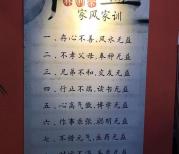 益
家风家训
一、存心不善,风水无益
二、不孝父母,奉神无益
三、兄弟不和,交友无益
四、行止不端,读书无益
五、心高气傲,博学无益
六、作事乖张,聪明无益
七、不惜元气,医药无益